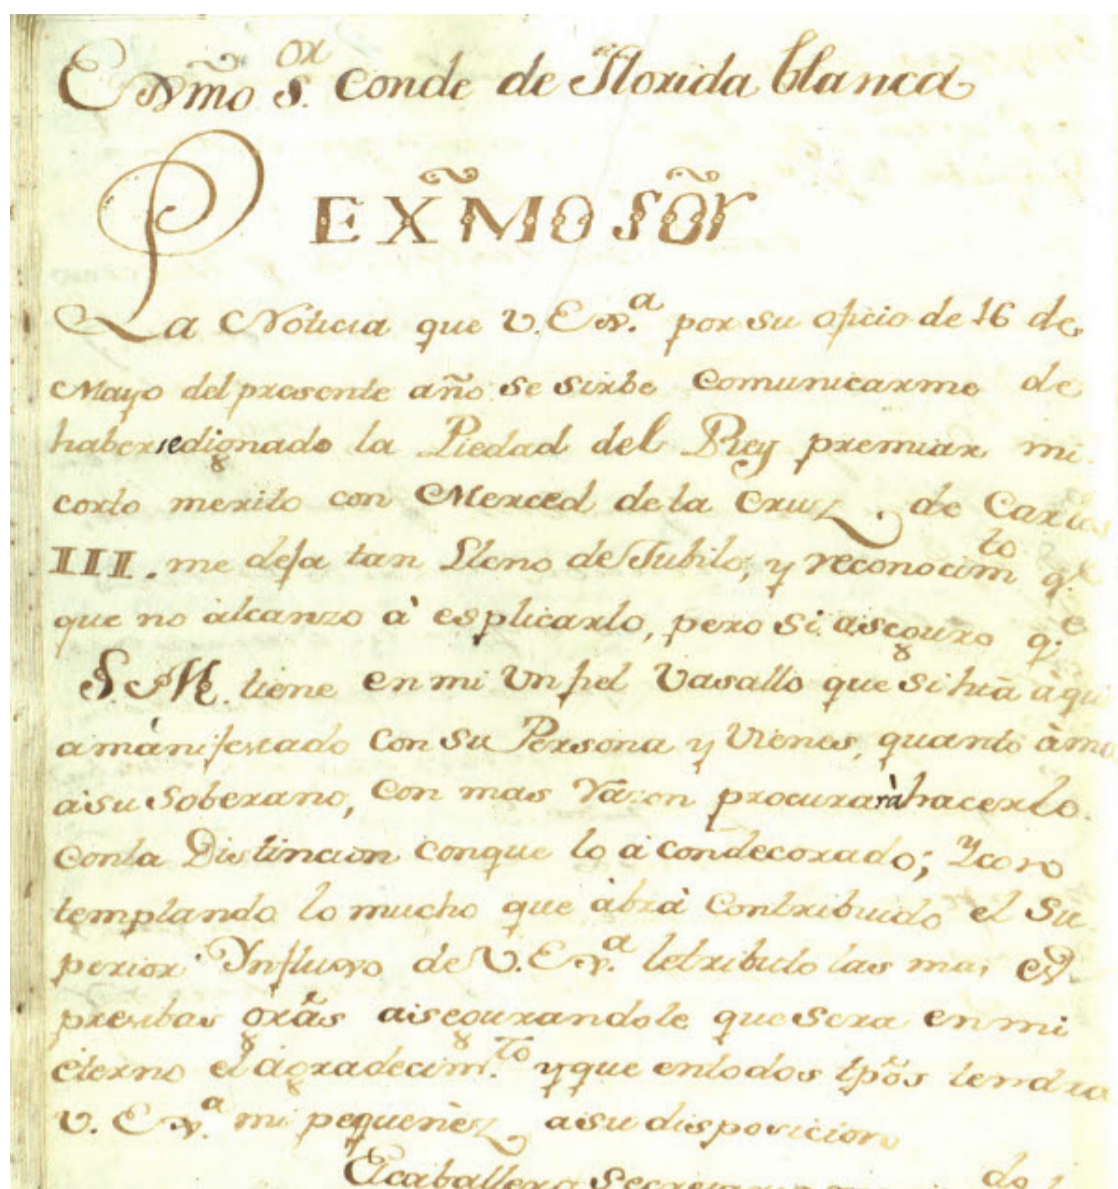 Exmõ S.or Conde de Florida blanca
EXM̃O SOR̃
La Noticia que V. Ex.a por su oficio de 16 de
Mayo del presente año se sirbe comunicarme de
habersedignado la Piedad del Rey premiar mi
corto merito con Merced dela Cruz de Carlos
III. me deja tan lleno de Jubilo, y reconocim.to
que no alcanzo à esplicarlo, pero si aseguro q.e
S. M. tiene en mi un fiel Vasallo que si hta àqui
a mànifestado con su Persona y Vienes, quanto àma
àsu Soberano, con mas Razon procurarà hacerlo
conla Distincion conque lo à condecorado; Y con
templando lo mucho que àbrà contribuido el Su
perior Ynfluxo de V. Ex.a letributo las mas ex
presibas grãs aisegurandole que sera en mi
eterno el àgradecim.to y que entodos tp̃os tendra
V. Ex.a mi pequeñèz asu disposicion
Elcaballero